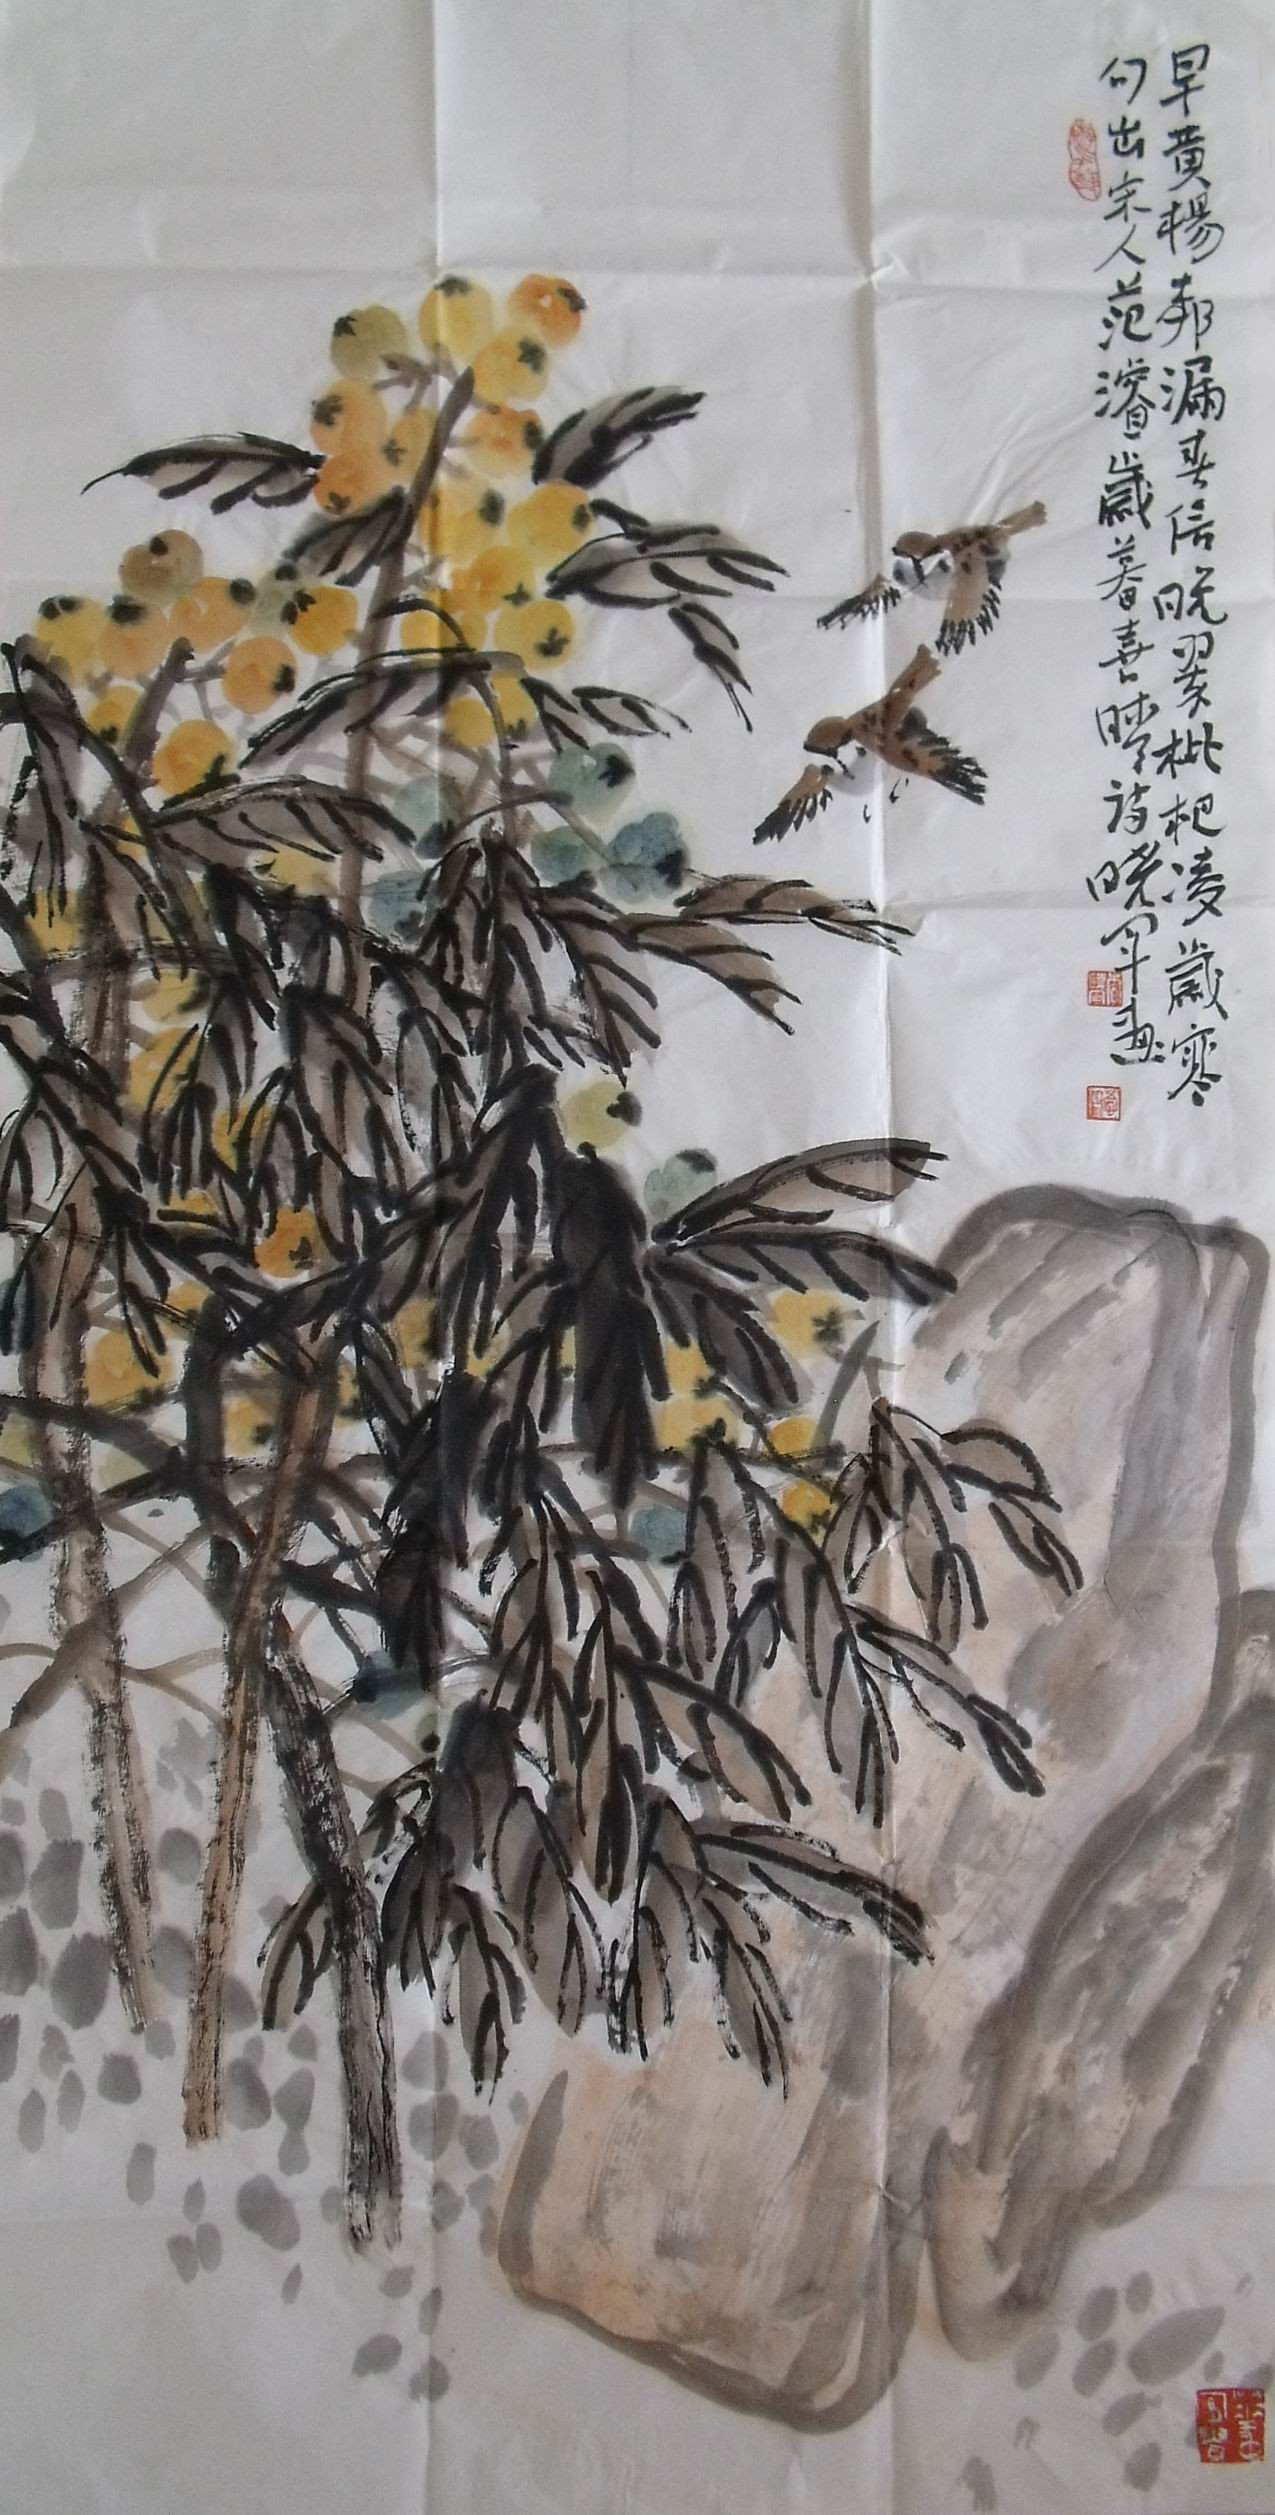 早黄杨邦漏春信晚翠枇杷凌岁寒
句出宋人范濬岁暮喜晴诗晓军画